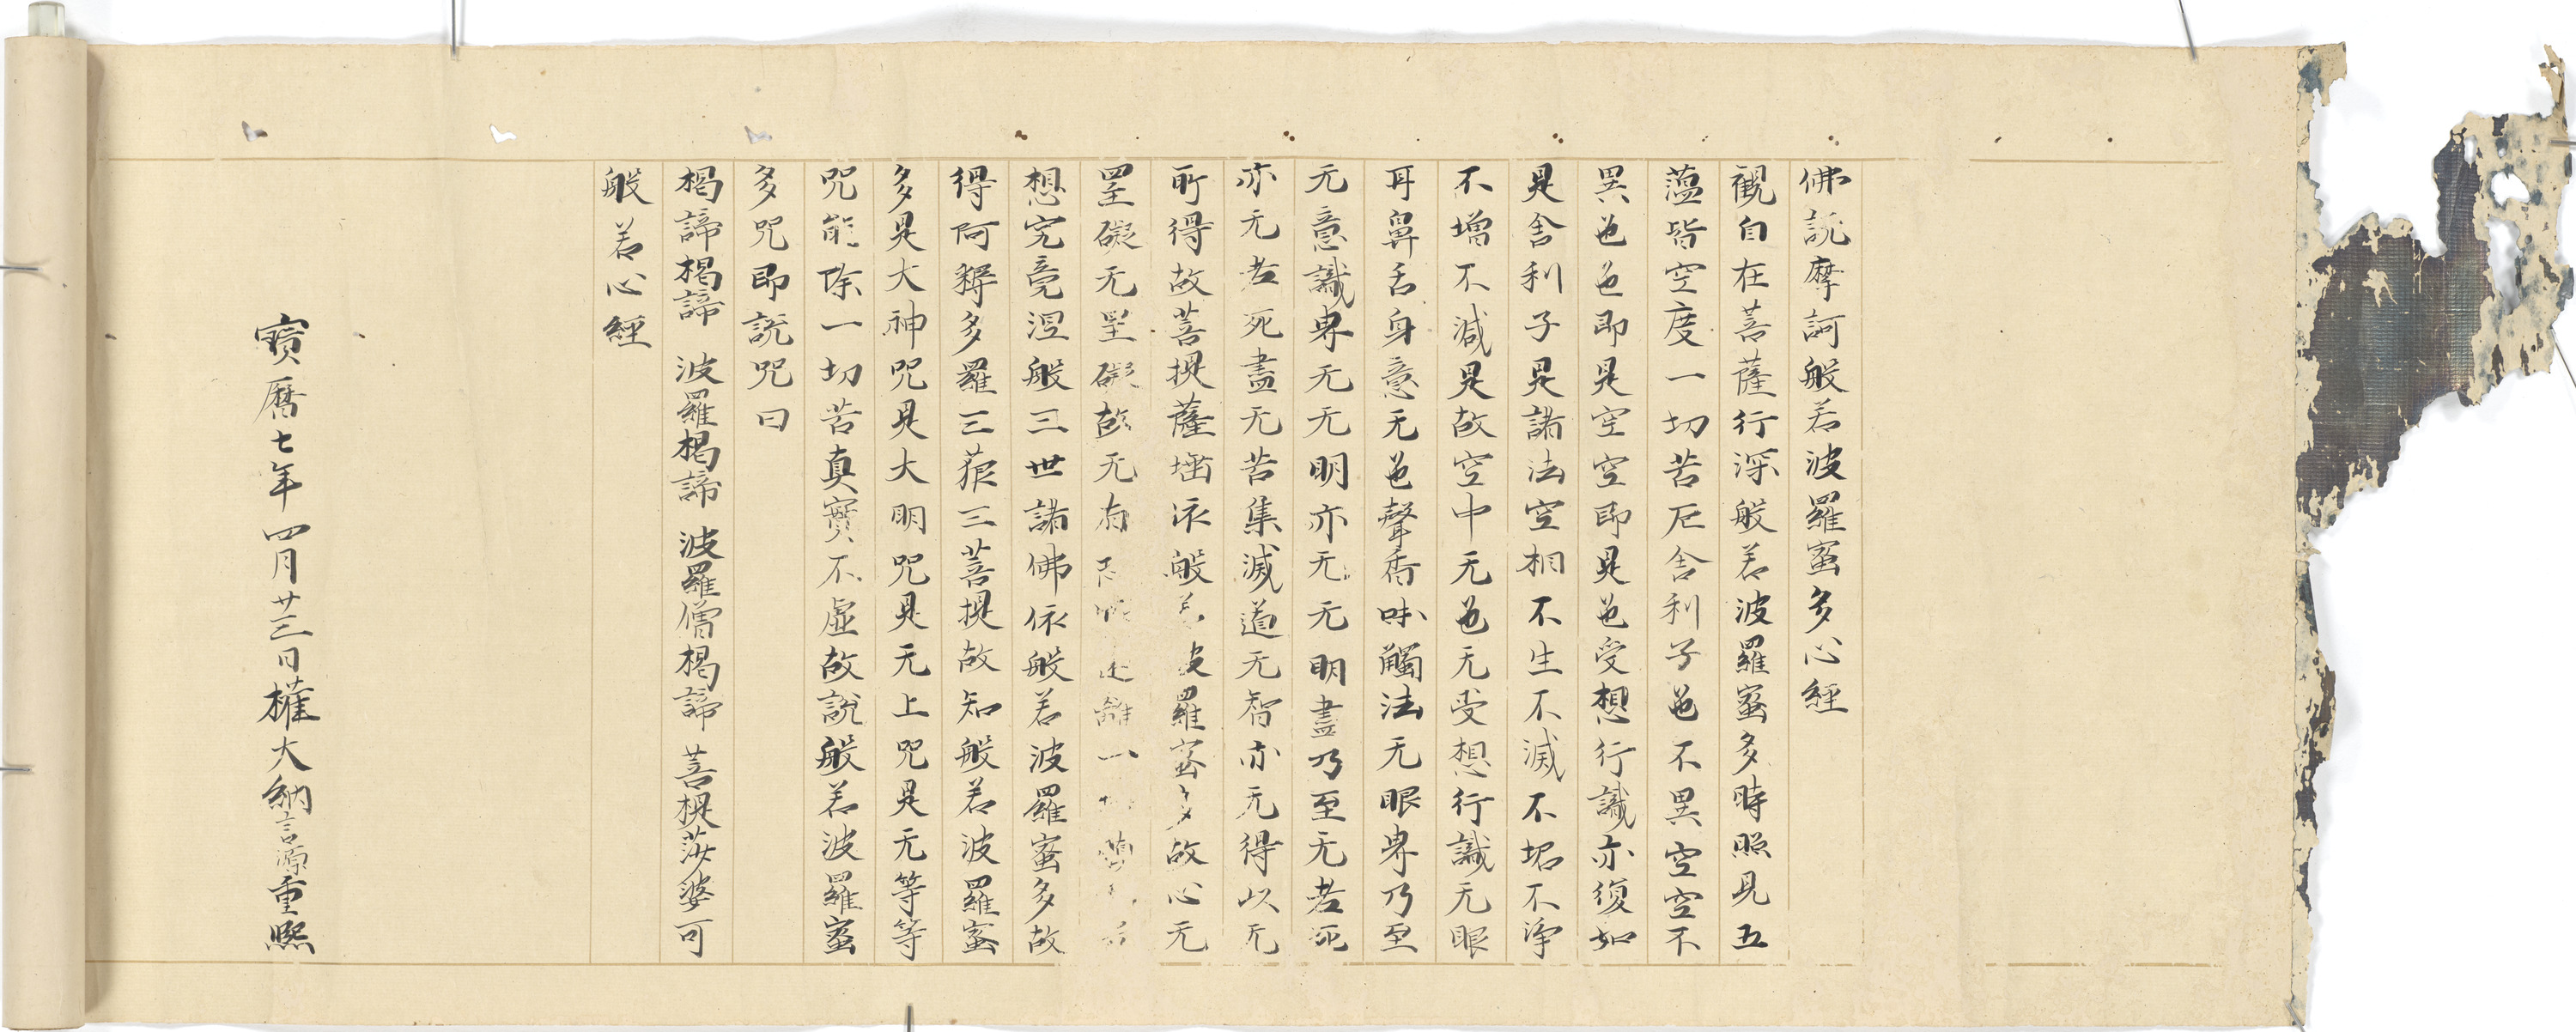 佛説摩訶般若波羅蜜多心経
観自在菩薩行深般若波羅蜜多時照見五
薀皆空度一切苦厄舎利子色不異空空不
異色色即是空空即是色受想行識亦復如
是舎利子是諸法空相不生不滅不垢不浄
不増不減是故空中无色无受想行識无眼
耳鼻舌身意无色聲香味觸法无眼界乃至
无意識界无无明亦无无明盡乃至无老死
亦无老死盡无苦集滅道无智亦无得以无
所得故菩提薩埵依般若波羅蜜多故心无
罣礙无罣礙故无有 遠離一
想究竟涅般三世諸佛依般若波羅蜜多故
得阿耨多羅三藐三菩提故知般若波羅蜜
多是大神咒是大明咒是无上咒是无等等
咒能除一切苦真實不虚故説般若波羅蜜
多咒即説咒曰
掲諦掲諦 波羅掲諦 波羅僧掲諦 菩提莎婆可
般若心経
寳暦七年四月廿三日権大納言源重熈